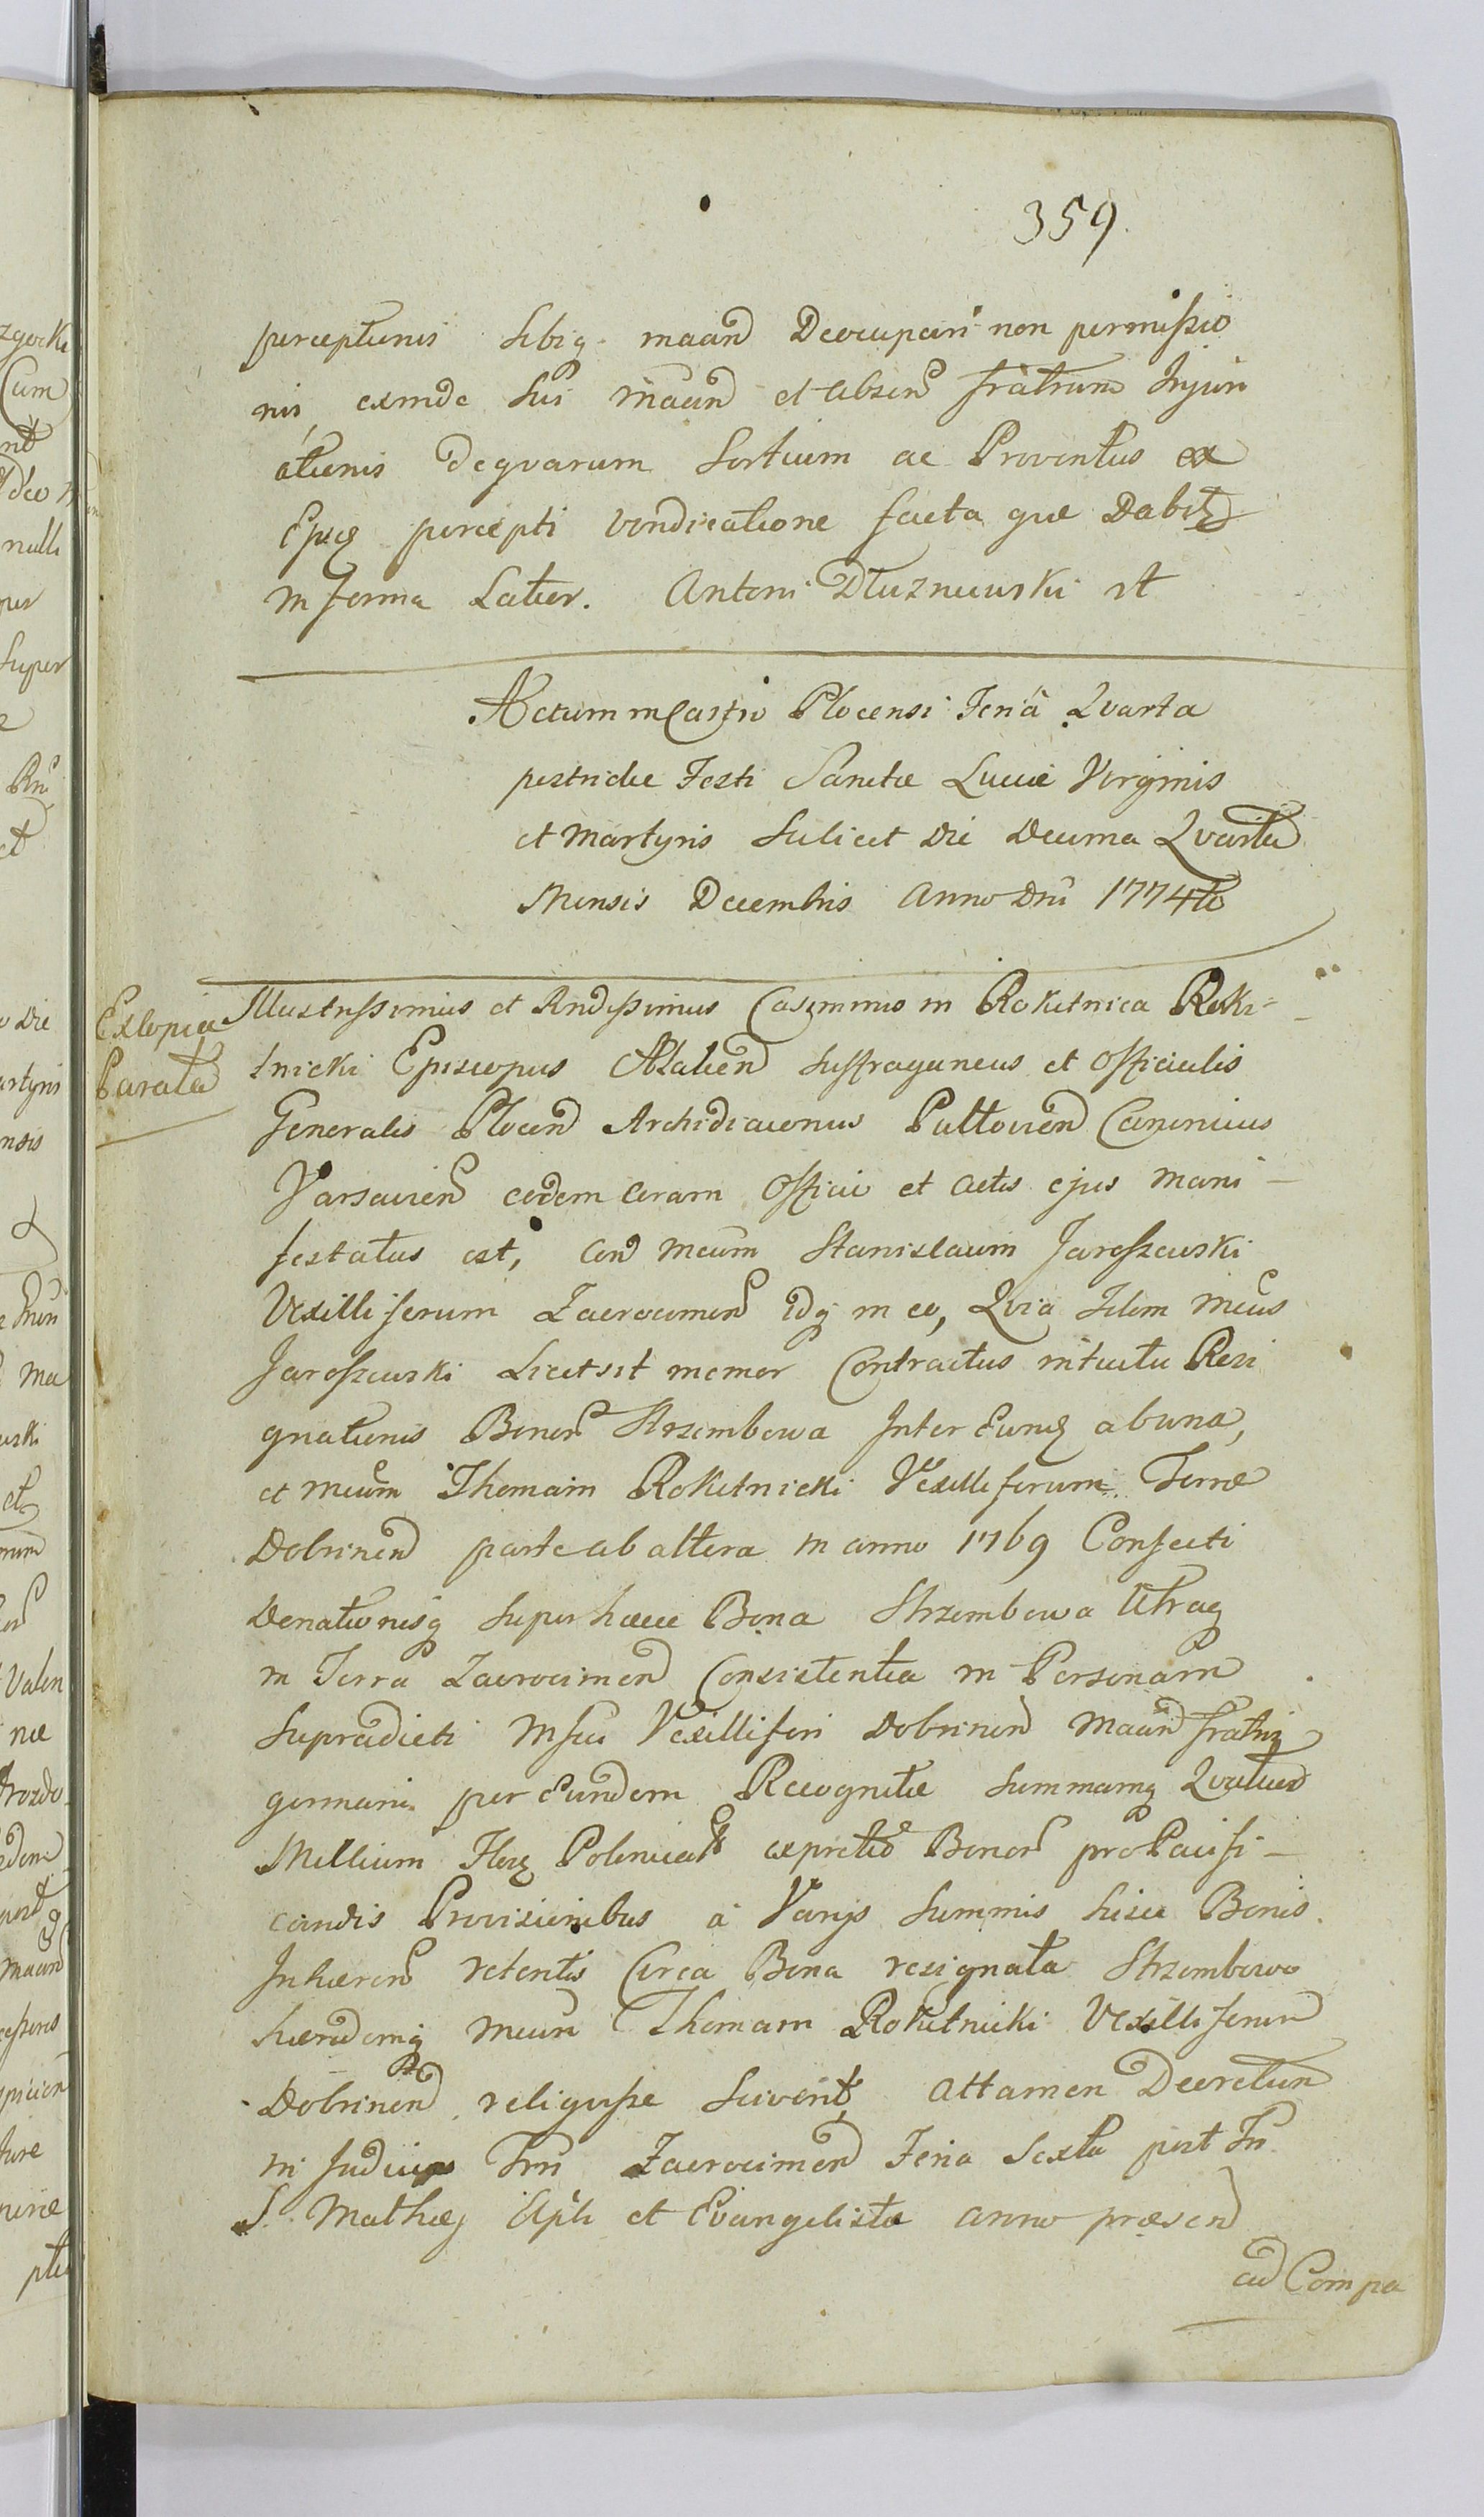 359.
perceptionis sibiq. maand Deoccupari non permissio
nis, exinde sui maand et absen fratrum Injuri
ationis deqvarum Sortium ac Proventus ex
Ejusq percepti vendicatione facta que Dabitq
in forma Latior. Antoni Dłuzniewski st
Actum in Castro Plocensi Feria Qvarta
postridie Festi Sanctæ Luciæ Virginis
et Martyris Scilicet Die Decima Qvarta
Mensis Decembris Anno Dni 1774to
Ex Copia
Parata
Illustrissimus et Rndissimus Casimirus in Rokitnica Roki-
tnicki Episcopus Atalien Suffraganeus et Officialis
Generalis Plocen Archidiaconus Pultovien Canonicus
Varsavien eodem coram Officio et Actis ejus mani-
festatus est, Con Mcum Stanislaum Jaroszewski
Vexilliferum Zacrocimen idq in eo, Qvia Idem Mcus
Jaroszewski Licet sit memor Contractus intuitu Resi
gnationis Bonor Strzembowa Inter Eunq ab una,
et Mcum Thomam Rokitnicki Vexilliferum Terræ
Dobrinen parte ab altera in anno 1769 Confecti
Donationisq super hæcce Bona Strzembowa Utraq
in Terra Zacrocimen Consistentia in Personam
Supradicti Mfici Vexilliferi Dobrinen maan fratris
germani per Eundem Recognitæ Summamq Qvatuor
Millium Flor Polonical ex pretio Bonor pro Pacifi-
candis Provisionibus a Varijs Summis hisce Bonis
Inhæren retentis Circa Bona resignata Strzembowo
hæredemq Mcum Thomam Rokitnicki Vexillifer
Dobrinen reliqvisse Sciverit, Attamen Decretum
in Judicijs Trris Zacrocimen Feria Sexta post Fn
S. Mathæj Apli et Evangelistæ anno præsen
ad Compa